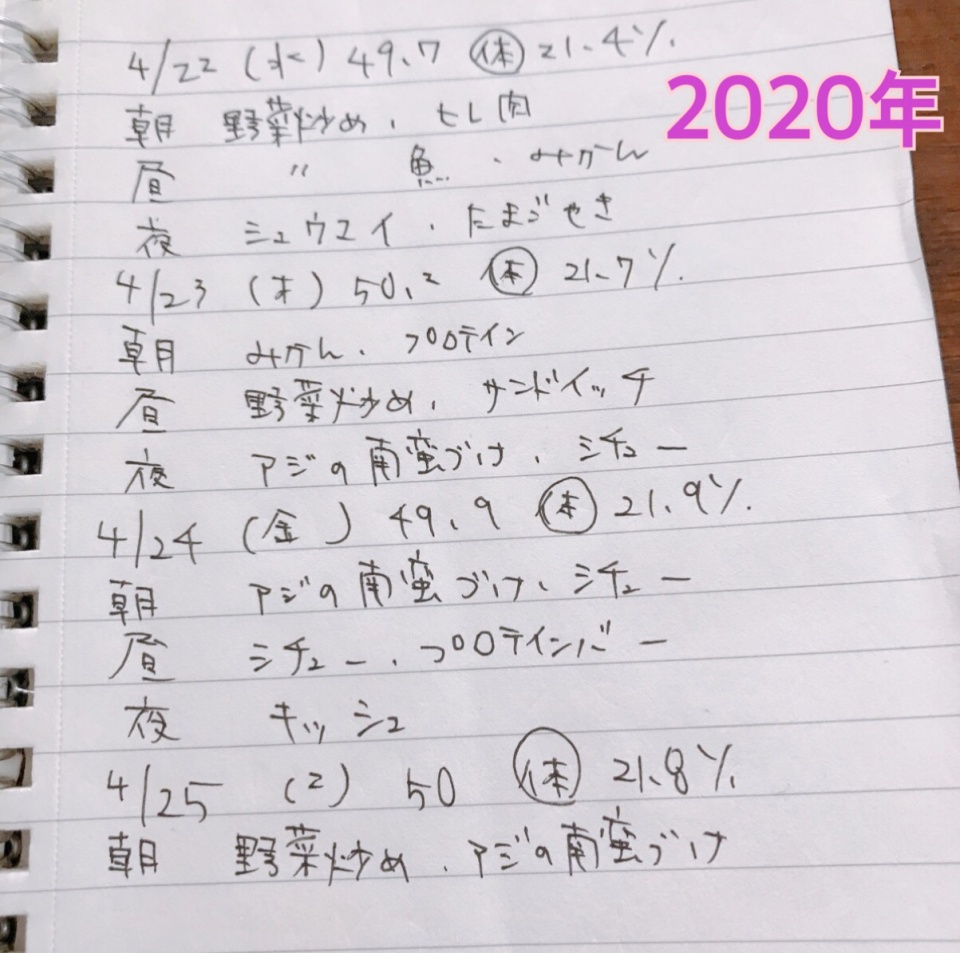 2020年
4/22 (水) 49.7 ㊡ 21.4%.
朝 野菜炒め、ヒレ肉
昼 〃 魚、みかん
夜 シュウマイ、たまごやき
4/23 (木) 50.2 ㊡ 21.7%.
朝 みかん、プロテイン
昼 野菜炒め、サンドイッチ
夜 アジの南蛮づけ、シチュー
4/24 (金) 49.9 ㊡ 21.9%.
朝 アジの南蛮づけ、シチュー
昼 シチュー、プロテインバー
夜 キッシュ
4/25 (土) 50 ㊡ 21.8%.
朝 野菜炒め、アジの南蛮づけ